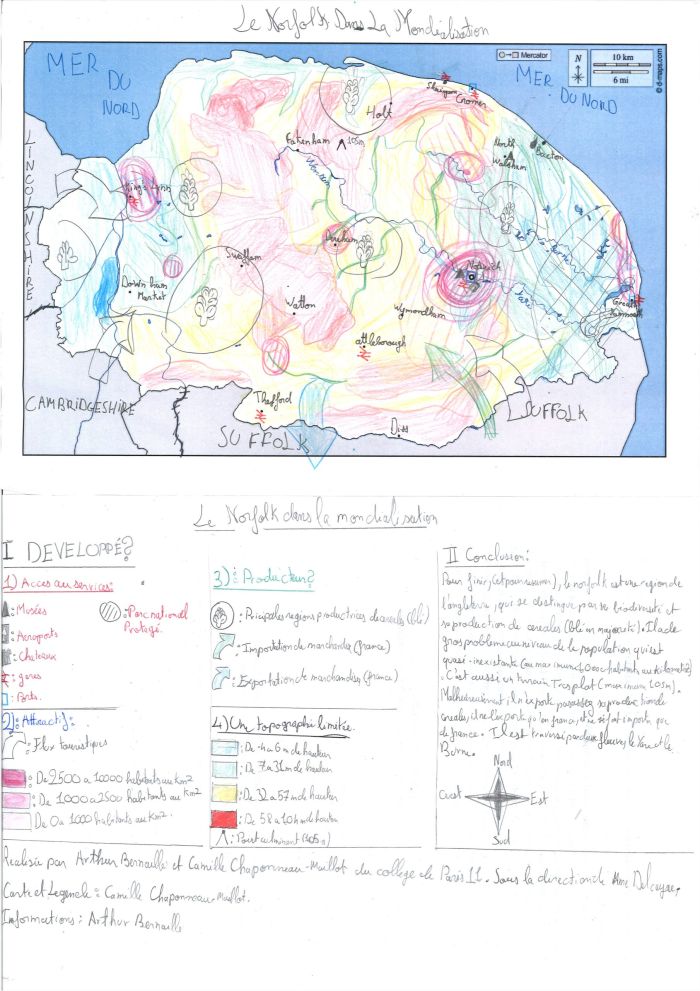 Le Norfolk Dans La Mondialisation
MER DU NORD
MER DU NORD
Mercator
N
10 km
6 mi
© d-maps.com
LINCOLNSHIRE
CAMBRIDGESHIRE
SUFFOLK
SUFFOLK
Cromer
Holt
Fakenham
105m
North Walsham
Bacton
King's Lynn
Dereham
Norwich
Swaffam
Downham Market
Watton
Wymondham
Great Yarmouth
attleborough
Thetford
Diss
Le Norfolk dans la mondialisation
I DEVELOPPÉ?
1) Acces au services:
: Musées
: Aeroports
: Chateaux
: gares
: Ports.
: Parc national Protegé.
2): Attractif:
: Flux touristiques
: De 2500 a 10000 habitants au km2
: De 1000 a 2500 habitants au km2
: De 0 a 1000 habitants au km2.
3): Producteur?
: Principales regions productrices de cereales (blé)
: Importation de marchandises (france)
: Exportation de marchandises (france)
4) Une topographie limitée.
: De 4 a 6 m de hauteur
: De 7 a 31 m de hauteur
: De 32 a 57 m de hauteur
: De 58 a 10 m de hauteur
: Point culminant (105 m)
II Conclusion:
Pour finir, (et pour resumer), le norfolk est une region de
l'angleterre, qui se distingue par sa biodiversité et
sa production de cereales (blé en majorité). Il a de
gros problemes au niveau de la population qui est
quasi-inexistante (au maximum 10000 habitants au kilometre2)
. C'est aussi un terrain Tres plat (maximum 105m).
Malheureusement, il n'exporte pas assez sa production de
cereales, il ne l'exporte qu'en france, et ne se fait importer que
de france. Il est traversé par deux fleuves, le Yare et le
Burne.
Nord
Ouest
Est
Sud
Realisée par Arthur Bernaille et Camille Chaponneau-Maillot du collège de Paris 11. Sous la direction de Mme Delcayre.
Carte et Legende: Camille Chaponneau-Maillot.
Informations: Arthur Bernaille